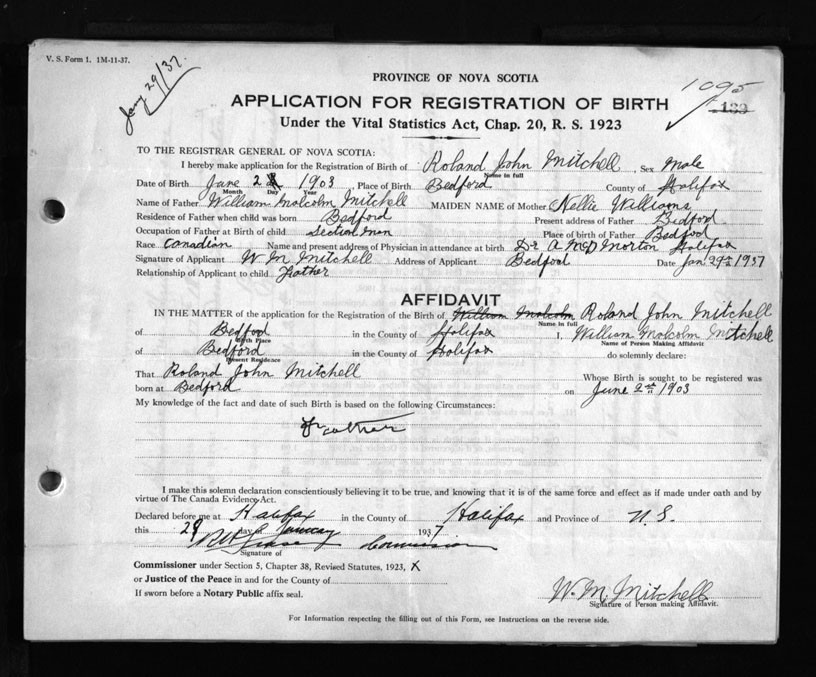 V. S. Form 1. 1M-11-37.
Jany 29/37.
PROVINCE OF NOVA SCOTIA
1095
APPLICATION FOR REGISTRATION OF BIRTH
Under the Vital Statistics Act, Chap. 20, R. S. 1923
TO THE REGISTRAR GENERAL OF NOVA SCOTIA:
I hereby make application for the Registration of Birth of Roland John Mitchell, Sex Male
Name in full
Date of Birth June 2 1903, Place of Birth Bedford County of Halifax
Month Day Year
Name of Father William Malcolm Mitchell MAIDEN NAME of Mother Nellie Williams
Residence of Father when child was born Bedford Present address of Father Bedford
Occupation of Father at Birth of child Section Men Place of birth of Father Bedfod
Race Canadian Name and present address of Physician in attendance at birth Dr A McD Morton Halifax
Signature of Applicant W M Mitchell Address of Applicant Bedfod Date Jan 29th 1937
Relationship of Applicant to child Father
AFFIDAVIT
IN THE MATTER of the application for the Registration of the Birth of William Malcolm Roland John Mitchell
Name in full
of Bedfod in the County of Halifax I, William Malcolm Mitchell
Birth Place Name of Person Making Affidavit
of Bedford in the County of Halifax do solemnly declare:
Present Residence
That Roland John Mitchell Whose Birth is sought to be registered was
born at Bedford on June 2nd 1903
My knowledge of the fact and date of such Birth is based on the following Circumstances:
Father
I make this solemn declaration conscientiously believing it to be true, and knowing that it is of the same force and effect as if made under oath and by
virtue of The Canada Evidence Act.
Declared before me at Halifax in the County of Halifax and Province of N.S.
this 29 day of January 1937
Commission
Signature of
Commissioner under Section 5, Chapter 38, Revised Statutes, 1923, X
or Justice of the Peace in and for the County of
If sworn before a Notary Public affix seal.
W. M. Mitchell
Signature of Person making Affidavit.
For Information respecting the filling out of this Form, see Instructions on the reverse side.